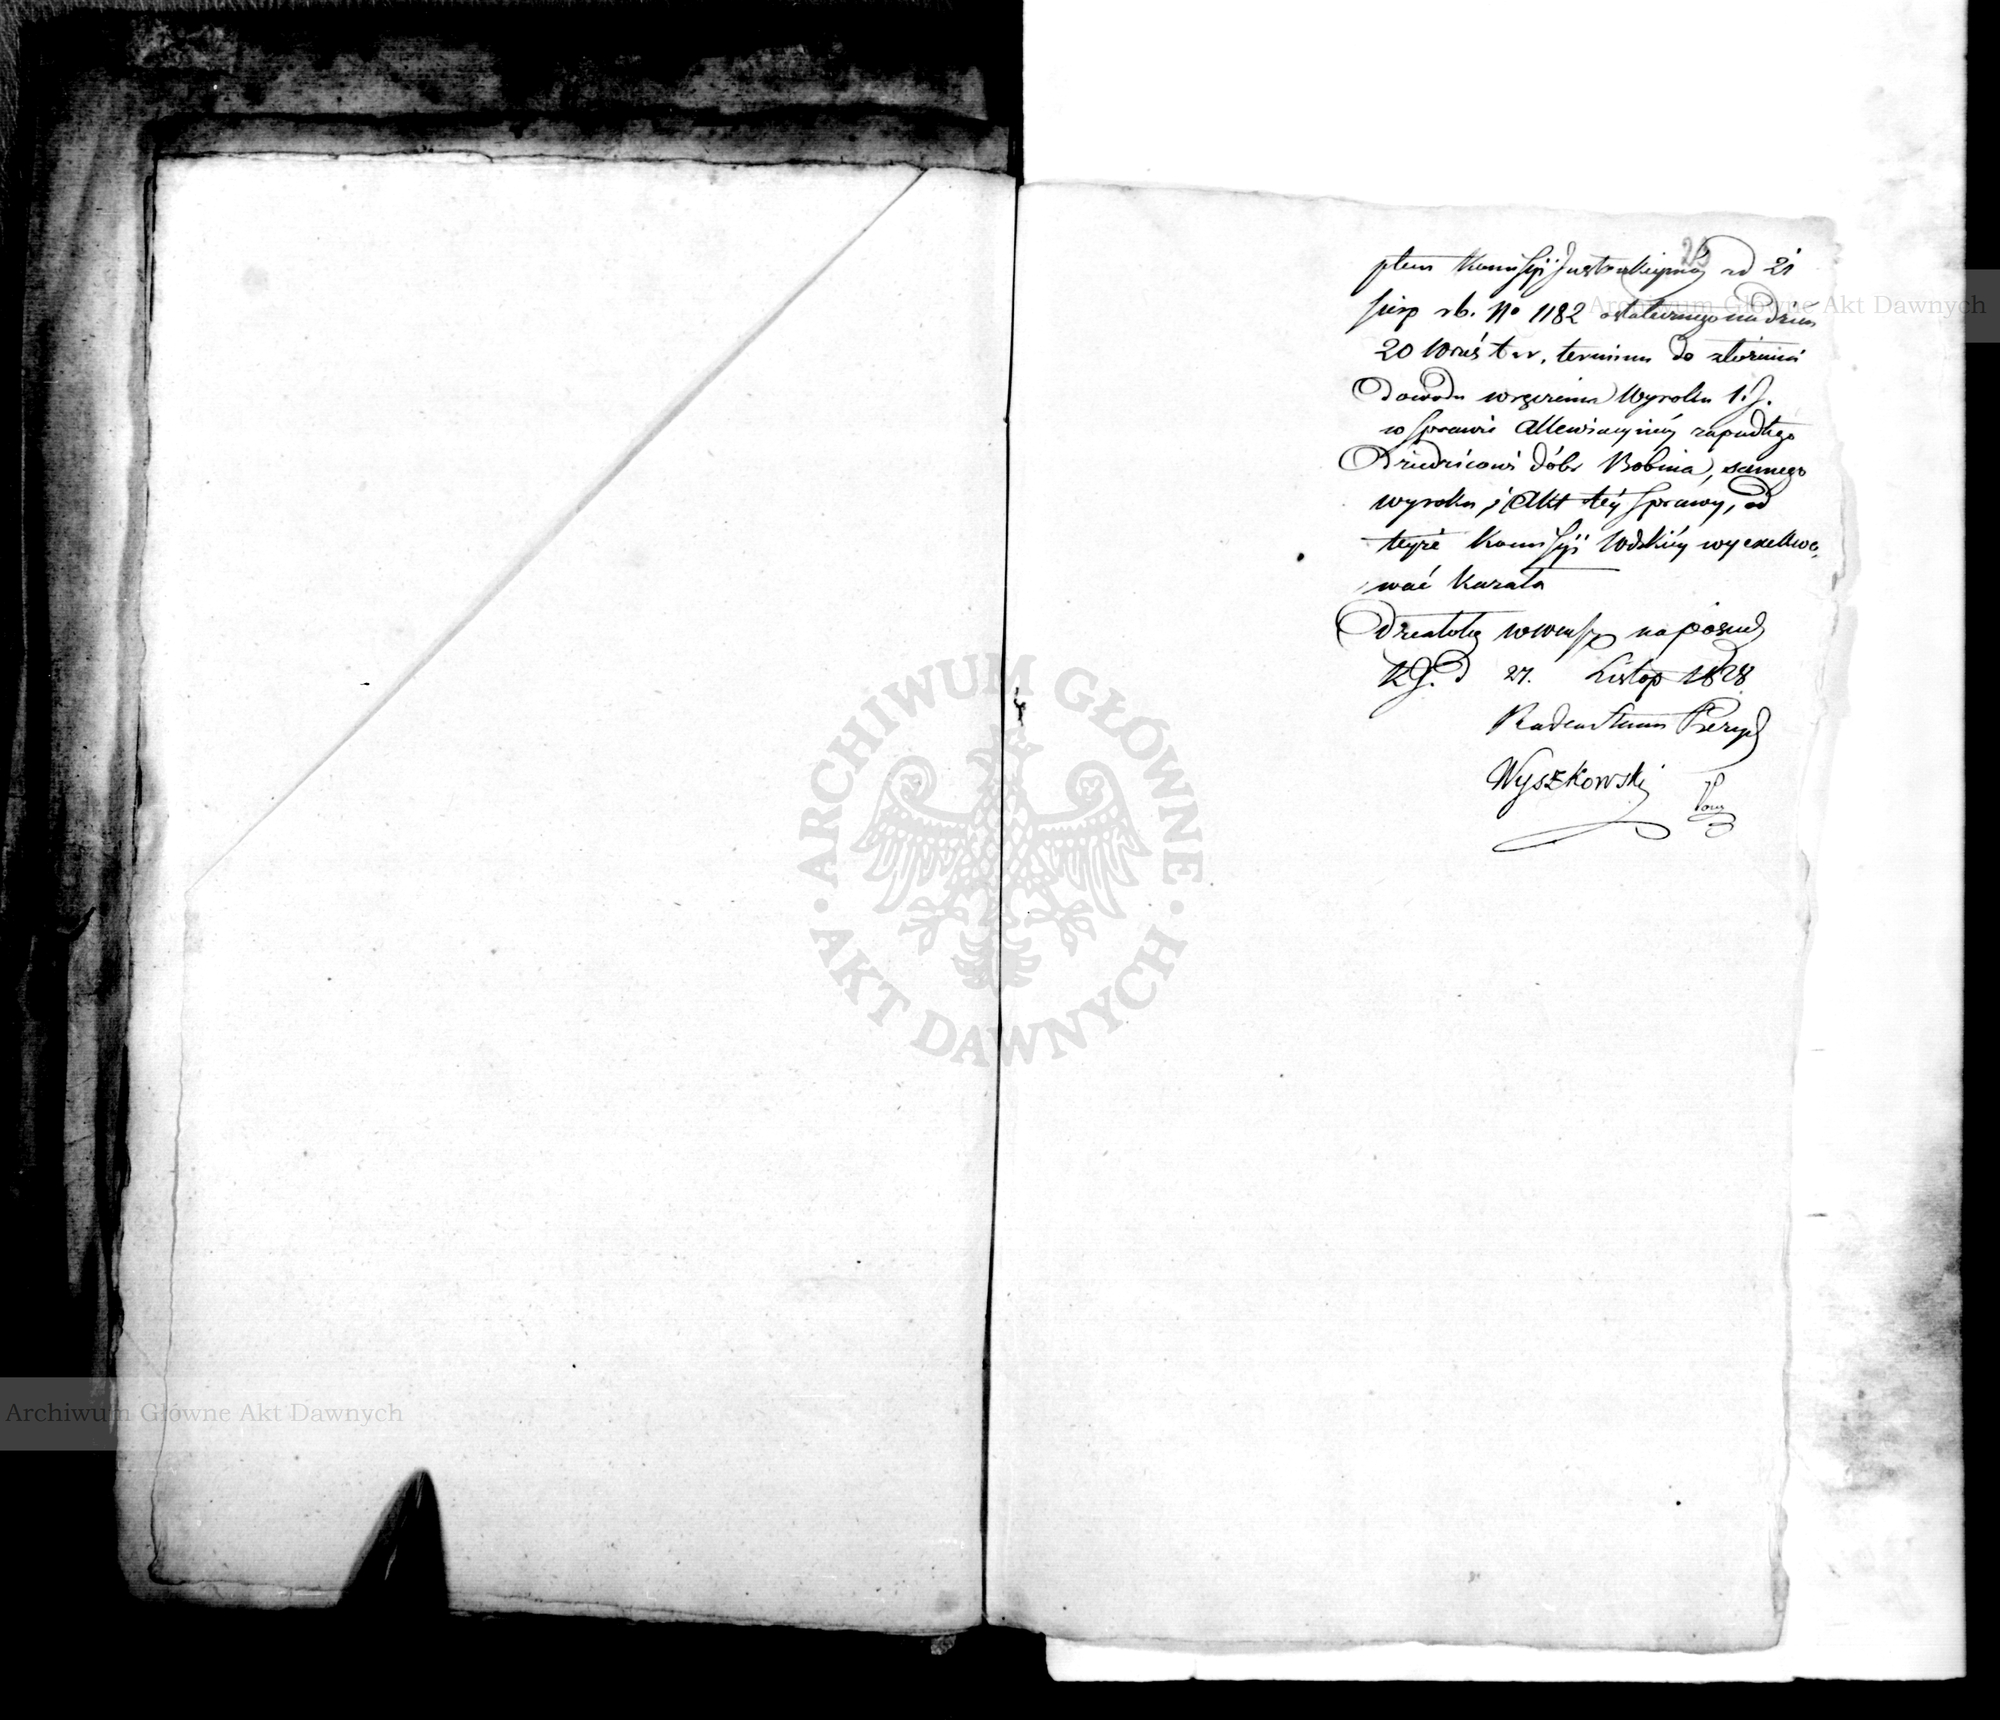 25
ptem Kommissyi Instrukcyinéy od 21
sierp rb. No 1182 ostatecznego na dzień
20 Wrześ t. r. terminu do złożenia
Dowodu wręczenia Wyroku 1. J.
w sprawie Allewiacyinéy zapadłego
Dziedzicowi dóbr Bobina, samego
wyroku i Akt téy sprawy, od
teyże Kommissyi Wdzkiéy wyexekwo,
wać kazała
Działo się w Warsz na posied
K J. d 27. Listop 1828
Radca Stanu Prezyd
Wyszkowski
Archiwum Główne Akt Dawnych
ARCHIWUM GŁÓWNE AKT DAWNYCH
Archiwum Główne Akt Dawnych